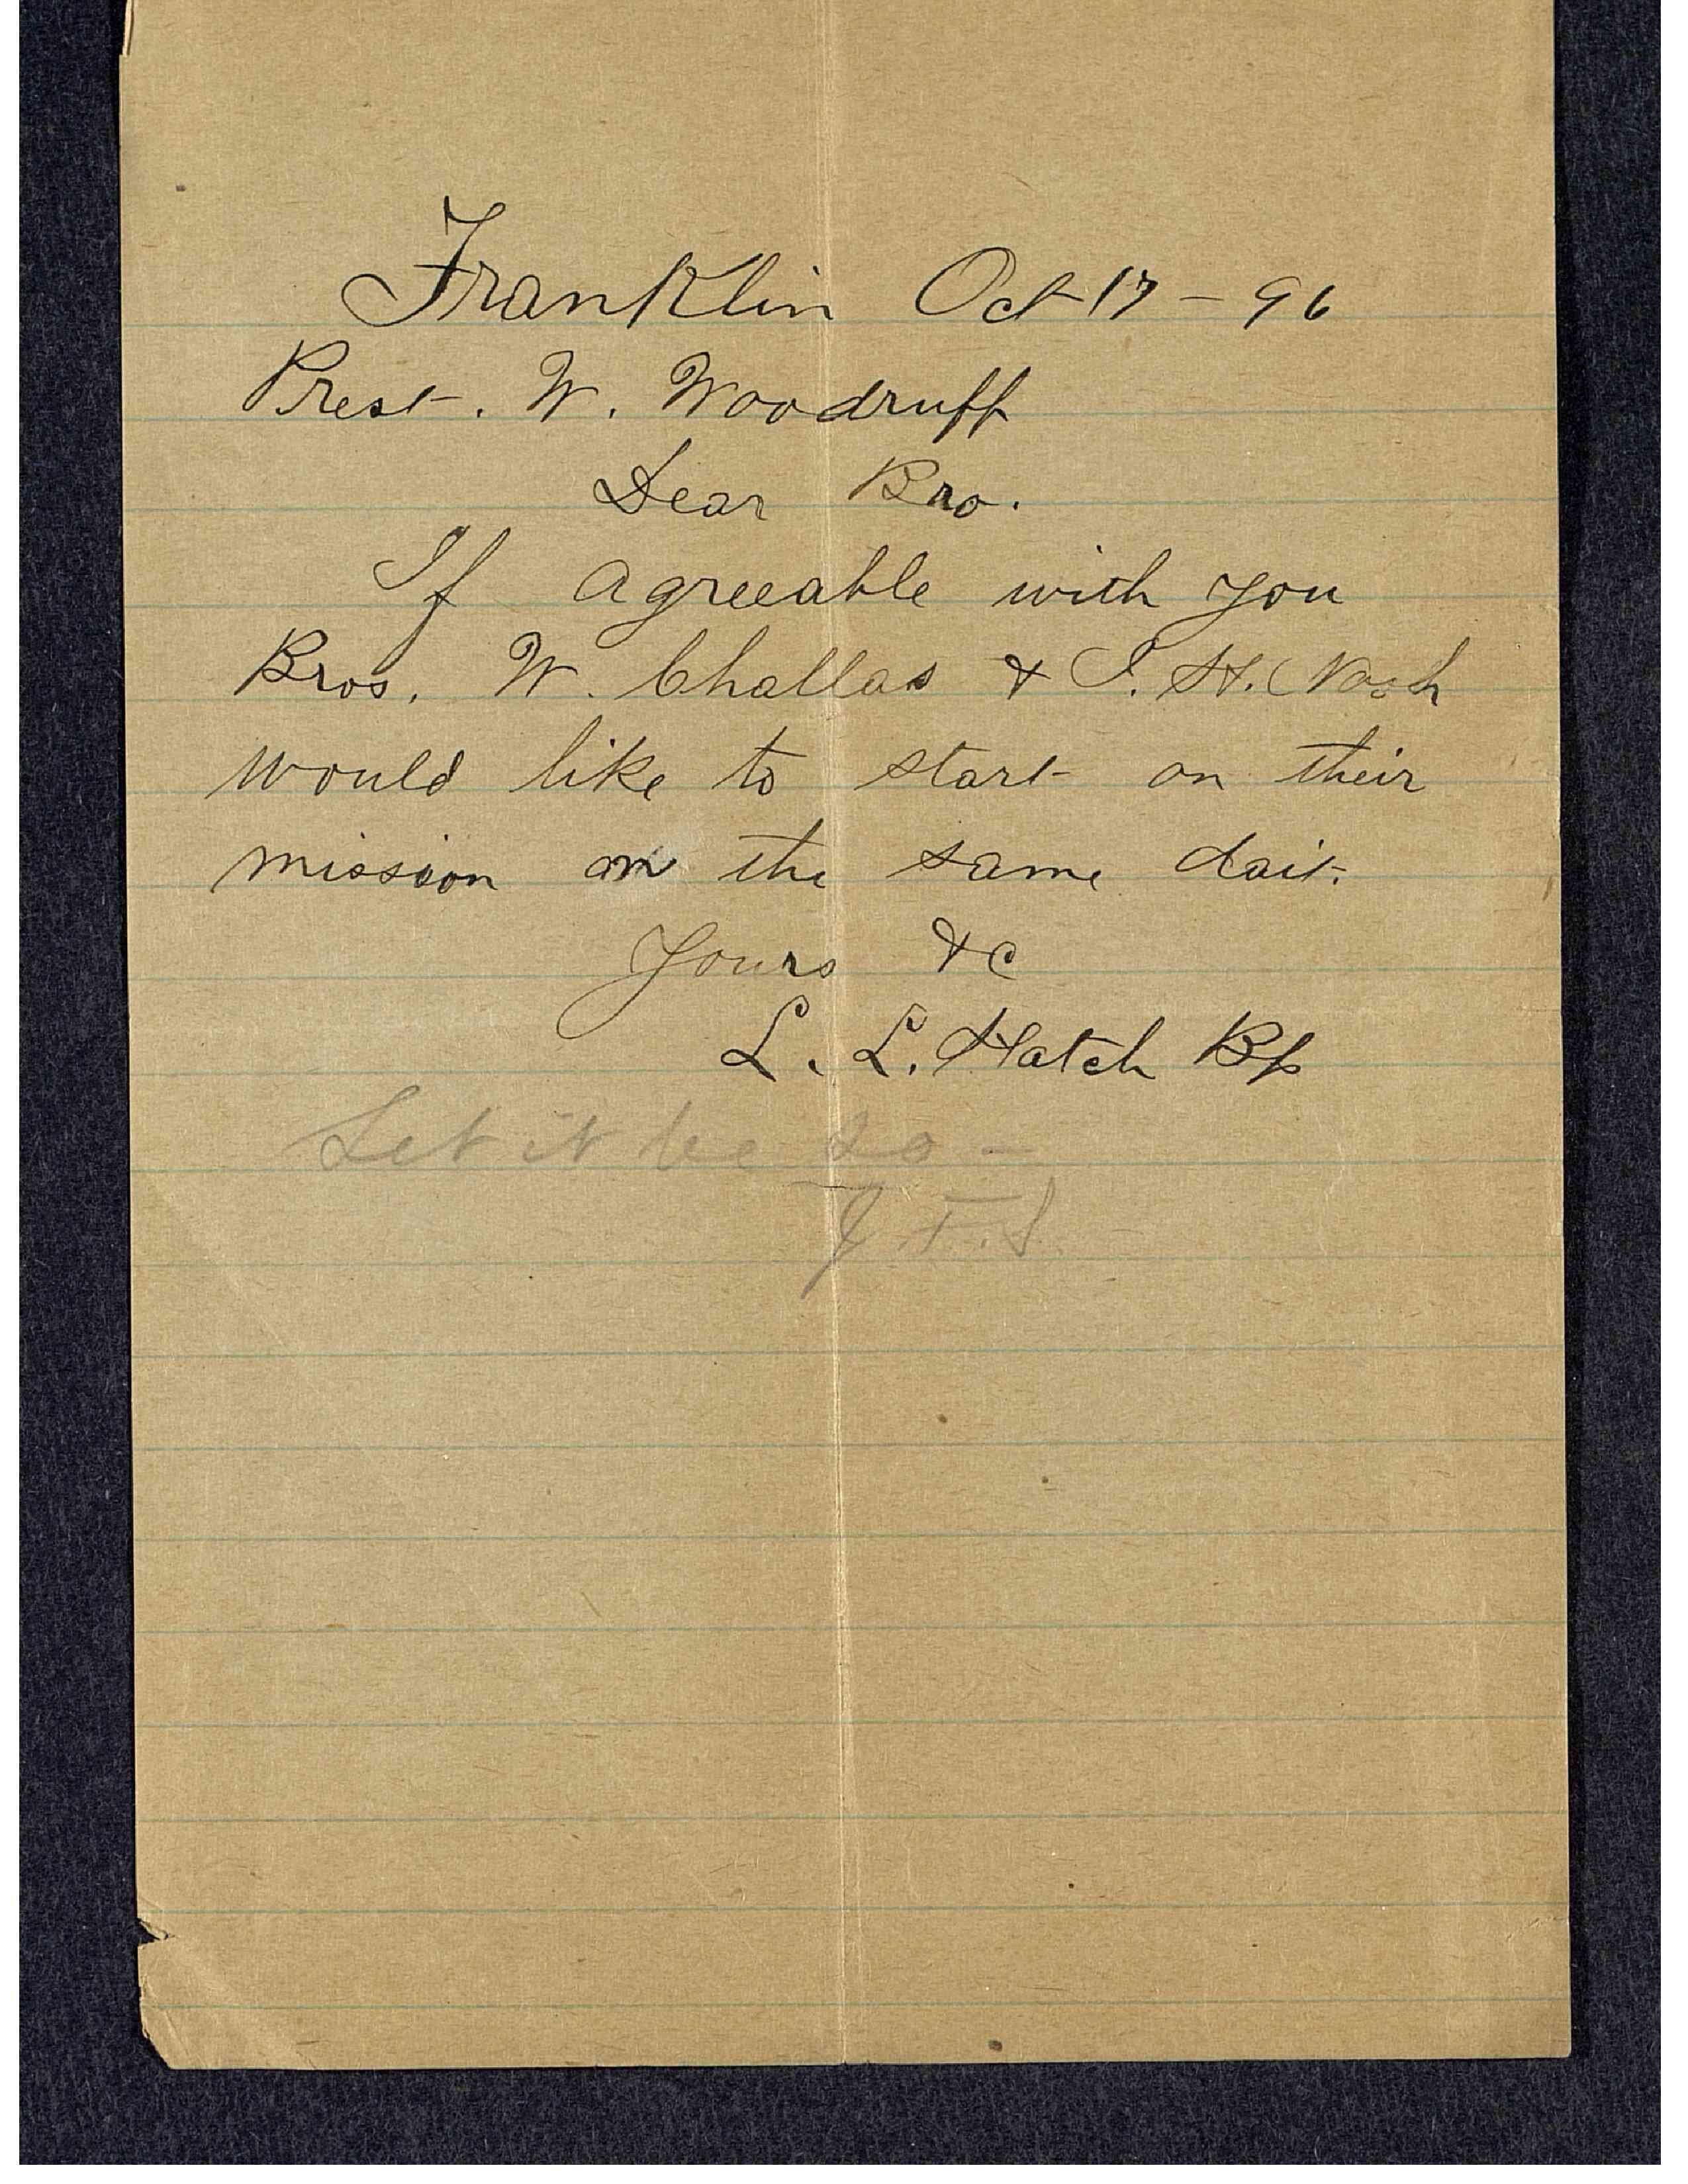 Franklin Oct 17 - 96
Prest. W. Woodruff
Dear Bro.
If agreeable with you
Bros. W. Challas & I. H. Nash
would like to start on their
mission on the same dait.
Yours &c
L. L. Hatch Bp
Let it be so -
J. F. S.